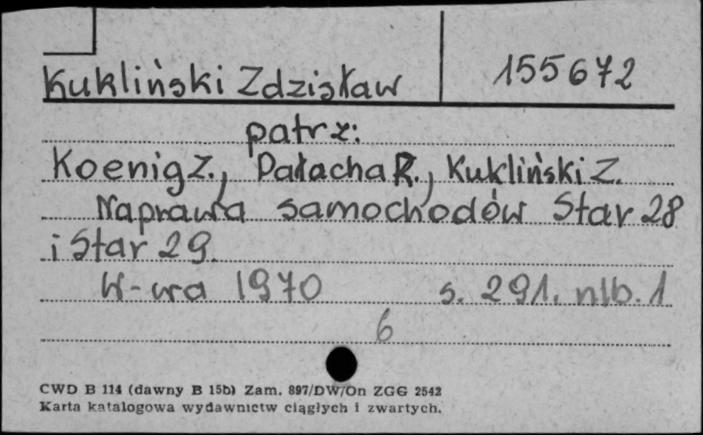 Kukliński Zdzisław 155672
patrz:
Koenig Z., Pałacha R., Kukliński Z.
Naprawa samochodów Star 28
i Star 29.
W-wa 1970 s. 291, nlb. 1
6
CWD B 114 (dawny B 15b) Zam. 897/DW/On ZGG 2542
Karta katalogowa wydawnictw ciągłych i zwartych.